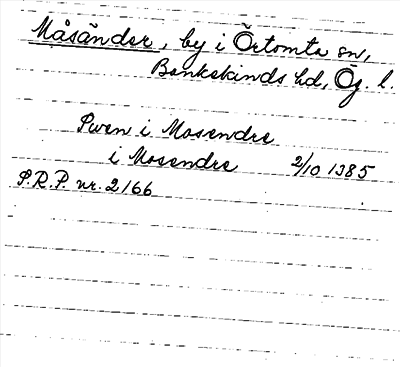 Måsänder, by i Örtomta sn,
Bankekinds hd, Ög. l.
Swen i Mosendre
i Mosendre 2/10 1385
S.R.P. nr. 2166